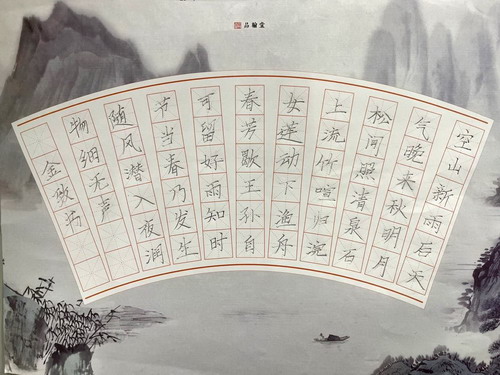 品翰堂
空山新雨后天
气晚来秋明月
松间照清泉石
上流竹喧归浣
女莲动下渔舟
春芳歇王孙自
可留好雨知时
节当春乃发生
随风潜入夜润
物细无声
金致书